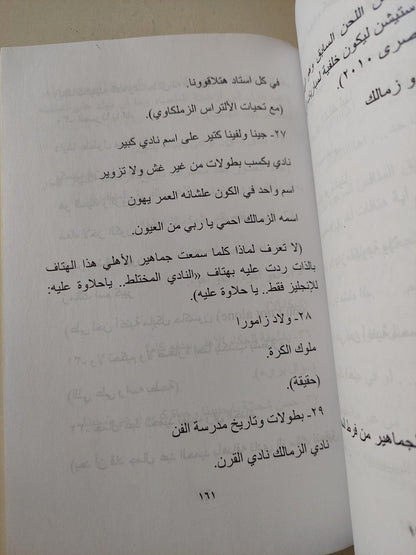 في كل استاد هتلاقوونا.
(مع تحيات الألتراس الزملكاوي).
٢٧- جينا ولفينا كتير على اسم نادي كبير
نادي يكسب بطولات من غير غش ولا تزوير
اسم واحد في الكون علشانه العمر يهون
اسمه الزمالك احمي يا ربي من العيون.
(لا تعرف لماذا كلما سمعت جماهير الأهلي هذا الهتاف
بالذات ردت عليه بهتاف «النادي المختلط.. ياحلاوة عليه:
للإنجليز فقط.. يا حلاوة عليه).
٢٨- ولاد زامورا
ملوك الكرة.
(حقيقة).
٢٩- بطولات وتاريخ مدرسة الفن
نادي الزمالك نادي القرن.
١٦١
اللحن السابق
ستيشن ليكون خلفية
صرى ٢٠١٠).
و زمالك
لجماهير من